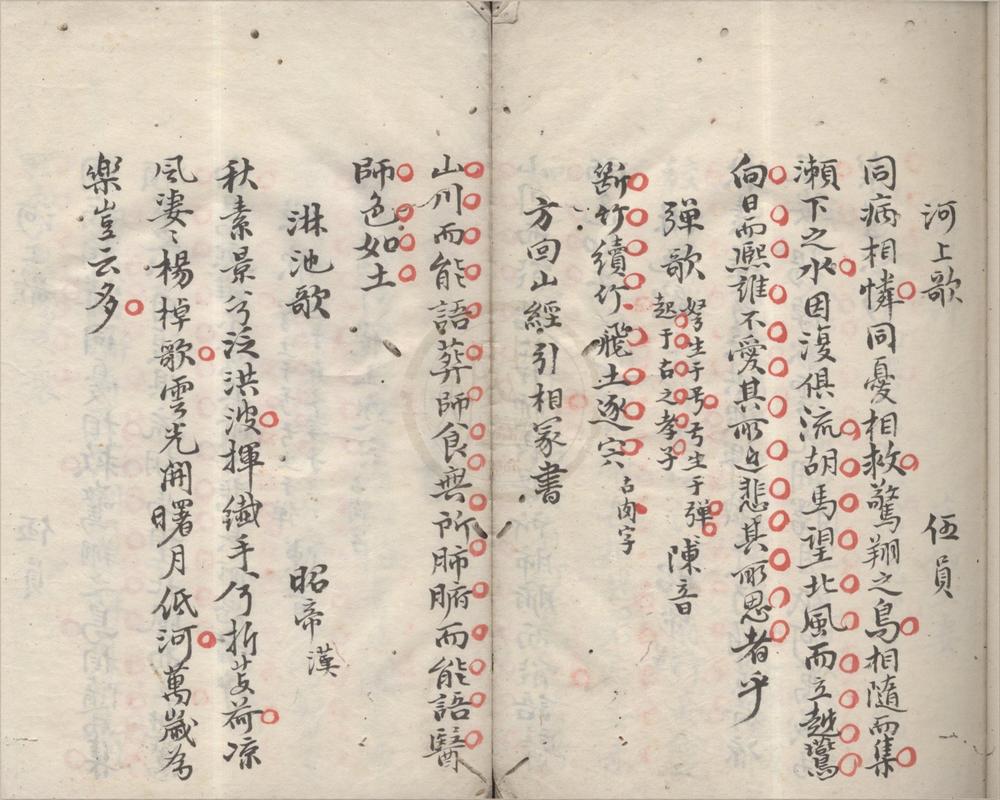 河上歌 伍員
同病相憐同憂相救驚翔之鳥相隨而集
瀨下之水因復俱流胡馬望北風而立越鷰
向日而熙誰不愛其所近悲其所思者乎
彈歌 弩生于弓弓生于彈
起于古之孝子 陳音
斷竹續竹飛土逐宍 古肉字
方回山經引相冢書
山川而能語葬師食無所肺腑而能語醫
師色如土
淋池歌 昭帝漢
秋素景兮泛洪波揮纖手兮折芰荷凉
風凄〻楊棹歌雲光開曙月低河萬歲為
樂豈云多